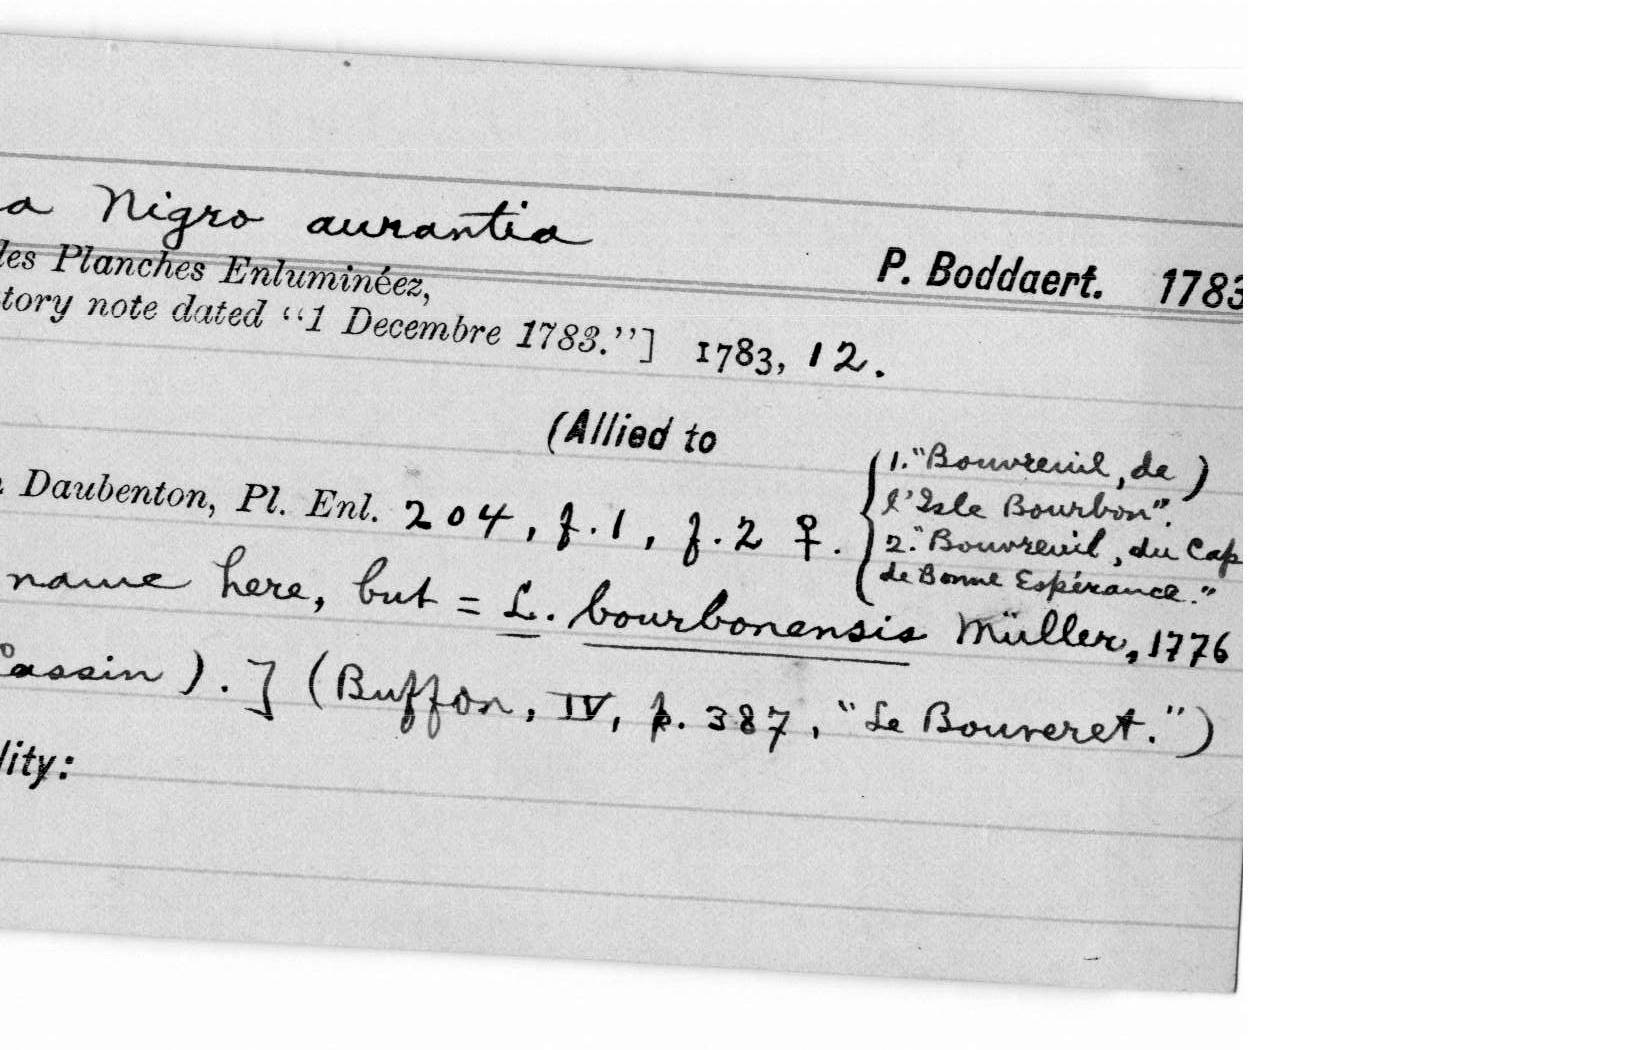 a Nigro aurantia
les Planches Enluminéez,
P. Boddaert. 1783
tory note dated “1 Decembre 1783.”] 1783, 12.
(Allied to )
Daubenton, Pl. Enl. 204, f.1, f.2 ♀.
1. "Bouvreuil, de
l'Isle Bourbon".
2. "Bouvreuil, du Cap
de Bonne Espérance."
name here, but = L. bourbonensis Müller, 1776
Cassin ).] (Buffon, IV, p. 387, "Le Bouveret.")
lity: